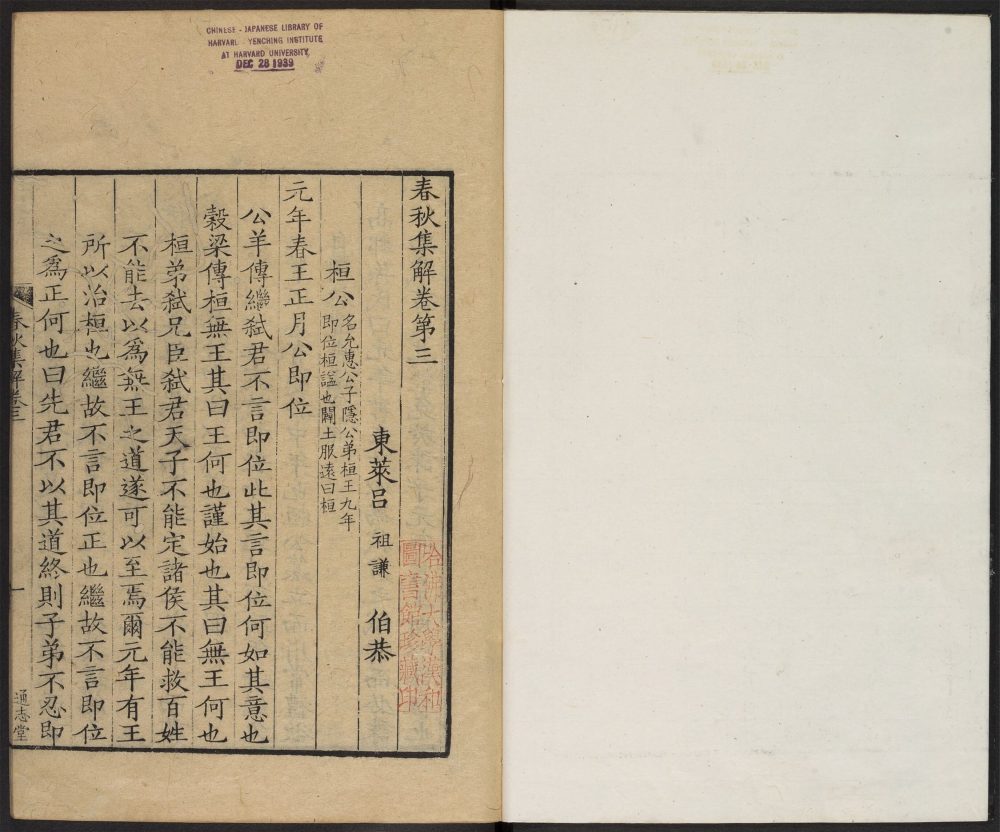 CHINESE - JAPANESE LIBRARY OF
HARVARD - YENCHING INSTITUTE
AT HARVARD UNIVERSITY
DEC 28 1939
春秋集解卷第三
東萊呂 祖謙 伯恭
哈佛大學漢和
圖書館珍藏印
桓公 名允惠公子隱公弟桓王九年
即位桓諡也闢土服遠曰桓
元年春王正月公即位
公羊傳繼弑君不言即位此其言即位何如其意也
穀梁傳桓無王其曰王何也謹始也其曰無王何也
桓弟弑兄臣弑君天子不能定諸侯不能救百姓
不能去以爲無王之道遂可以至焉爾元年有王
所以治桓也繼故不言即位正也繼故不言即位
之爲正何也曰先君不以其道終則子弟不忍即
春秋集解卷三
一
通志堂